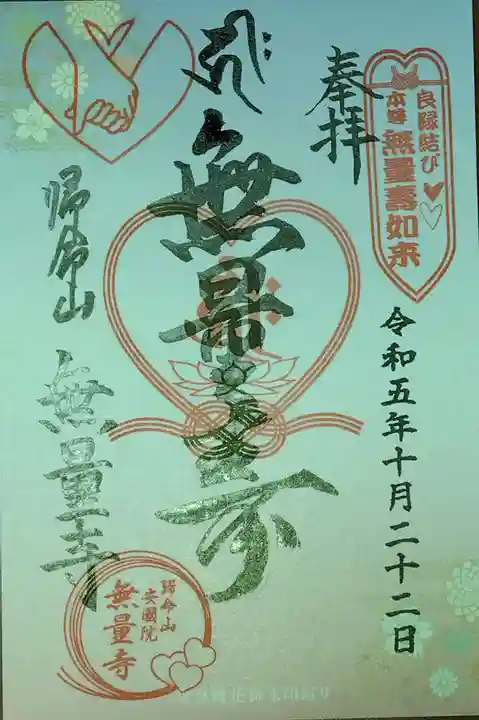 奉拝
良縁結び
本尊 無量壽如来
令和五年十月二十二日
無量寿
帰命山
無量寺
帰命山
安國院
無量寺